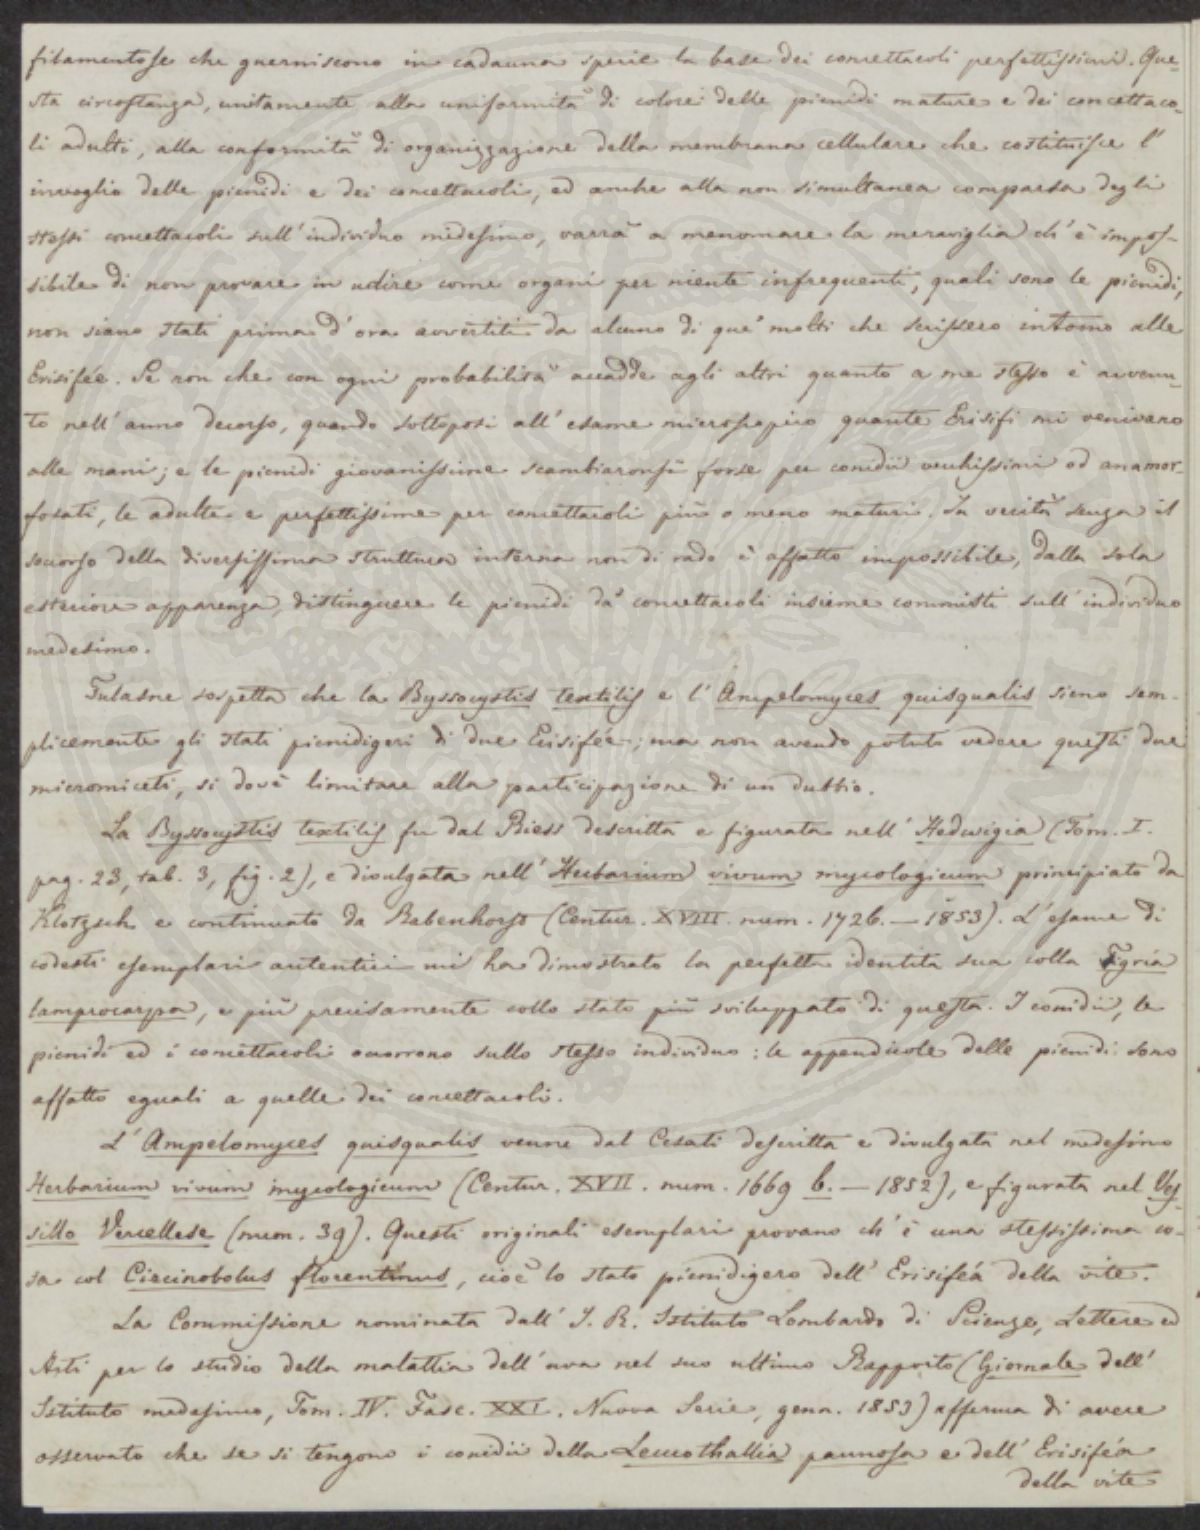 filamentose che guerniscono in cadauna specie la base dei concettacoli perfettissimi. Que-
sta circostanza, unitamente alla uniformità di colore delle picnidi mature e dei concettaco-
li adulti, alla conformità di organizzazione della membrana cellulare che costituisce l'
invoglio delle picnidi e dei concettacoli, ed anche alla non simultanea comparsa degli
stessi concettacoli sull'individuo medesimo, varrà a menomare la meraviglia ch'è impos-
sibile di non provare in udire come organi per niente infrequenti, quali sono le picnidi,
non siano stati prima d'ora avvertiti da alcuno di que' molti che scrissero intorno alle
Erisifée. Se non che con ogni probabilità accadde agli altri quanto a me stesso è avvenu-
to nell'anno decorso, quando sottoposi all'esame microscopico quante Erisifi mi venivano
alle mani; e le picnidi giovanissime scambiaronsi forse per conidii vecchissimi od anamor-
fosati, le adulte e perfettissime per concettacoli più o meno maturi. In verità senza il
soccorso della diversissima struttura interna non di rado è affatto impossibile, dalla sola
esteriore apparenza, distinguere le picnidi da' concettacoli insieme commisti sull'individuo
medesimo.
Tulasne sospetta che la Byssocystis textilis e l'Ampelomyces quisqualis sieno sem-
plicemente gli stati picnidigeri di due Erisifée; ma non avendo potuto vedere questi due
micromiceti, si dovè limitare alla participazione di un dubbio.
La Byssocystis textilis fu dal Riess descritta e figurata nell'Hedwigia (Tom. I.
pag. 23, tab. 3, fig. 2), e divulgata nell'Herbarium vivum mycologicum principiato da
Klotzsch e continuato da Rabenhorst (Centur. XVIII. num. 1726. — 1853). L'esame di
codesti esemplari autentici mi ha dimostrato la perfetta identità sua colla Tigria
lamprocarpa, e più precisamente collo stato più sviluppato di questa. I conidii, le
picnidi ed i concettacoli occorrono sullo stesso individuo: le appendicole delle picnidi sono
affatto eguali a quelle dei concettacoli.
L'Ampelomyces quisqualis venne dal Cesati descritta e divulgata nel medesimo
Herbarium vivum mycologicum (Centur. XVII. num. 1669 b. — 1852), e figurata nel Ves-
sillo Vercellese (num. 39). Questi originali esemplari provano ch'è una stessissima co-
sa col Cicinobolus florentinus, cioè lo stato picnidigero dell'Erisiféa della vite.
La Commissione nominata dall'I. R. Istituto Lombardo di Scienze, Lettere ed
Arti per lo studio della malattia dell'uva nel suo ultimo Rapporto (Giornale dell'
Istituto medesimo, Tom. IV. Fasc. XXI. Nuova Serie, genn. 1853) afferma di avere
osservato che se si tengono i conidii della Leucothallia pannosa e dell'Erisiféa
della vite